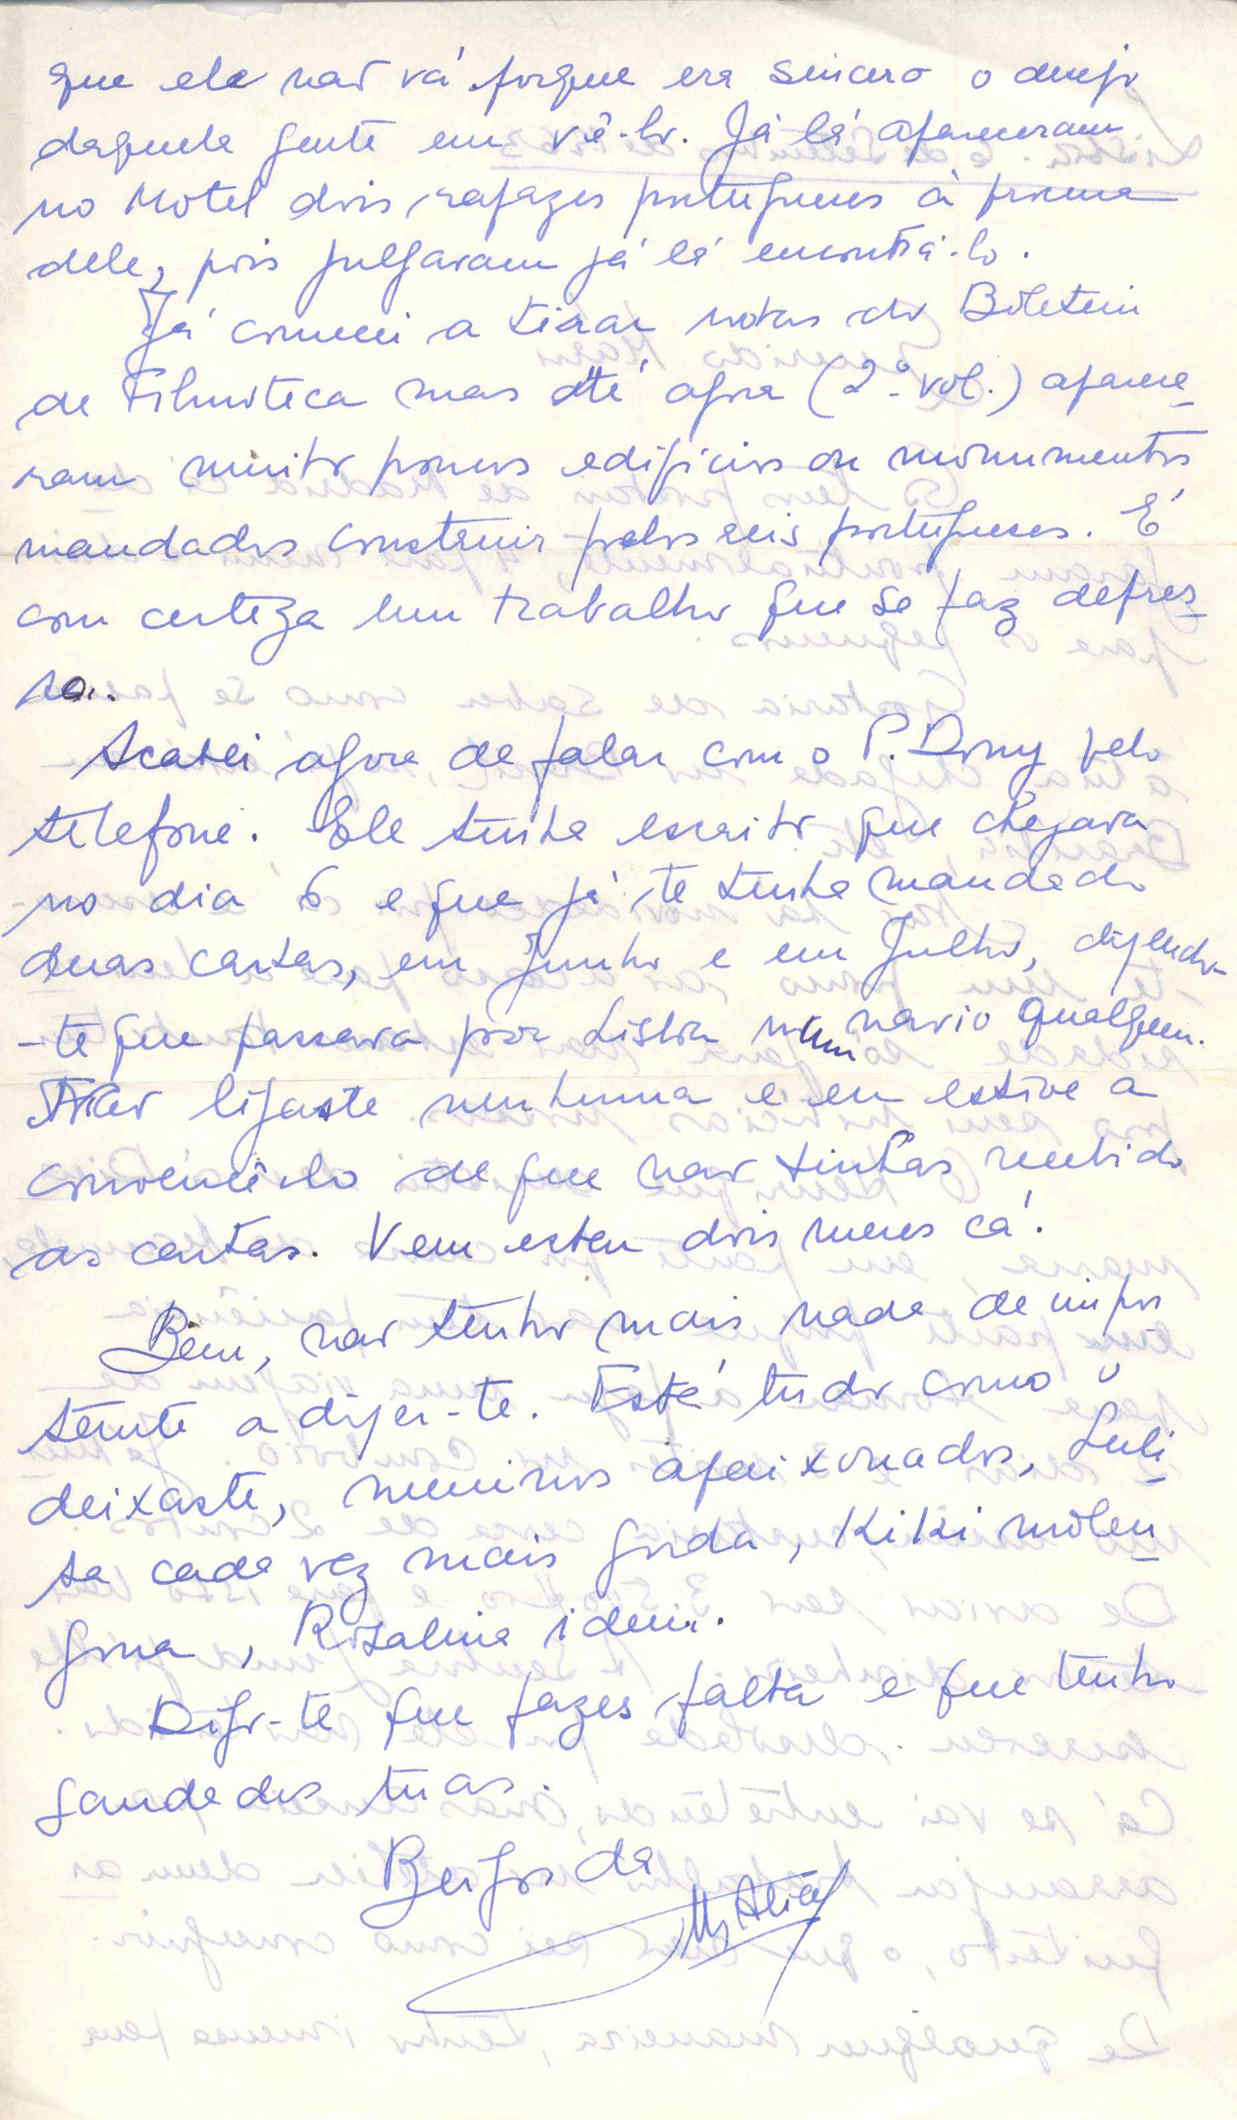 que ele não vá porque era sincero o desejo
daquela gente em vê-lo. Já lá apareceram
no Motel dois rapazes portugueses à procura
dele, pois julgavam já lá encontrá-lo.
Já comecei a tirar notas do Boletim
de Filmoteca mas até agora (2º vol.) aparece_
ram muito poucos edifícios ou monumentos
mandados construir pelos reis portugueses. É
com certeza um trabalho que se faz depres_
sa.
Acabei agora de falar com o P. Dony pelo
telefone. Ele tinha escrito que chegava
no dia 6 e que já te tinha mandado
duas cartas, em Junho e em Julho, dizendo-
-te que passava por Lisboa num navio qualquer.
Não ligaste nenhuma e eu estive a
convencê-lo de que não tinhas recebido
as cartas. Vem estar dois meses cá.
Bem, não tenho mais nada de impor
tante a dizer-te. Está tudo como o
deixaste, meninos apaixonados, Luli_
ta cada vez mais gorda, Kiki molen_
gona, Rosalina idem.
Digo-te que fazes falta e que tenho
saudades tuas.
Beijos da